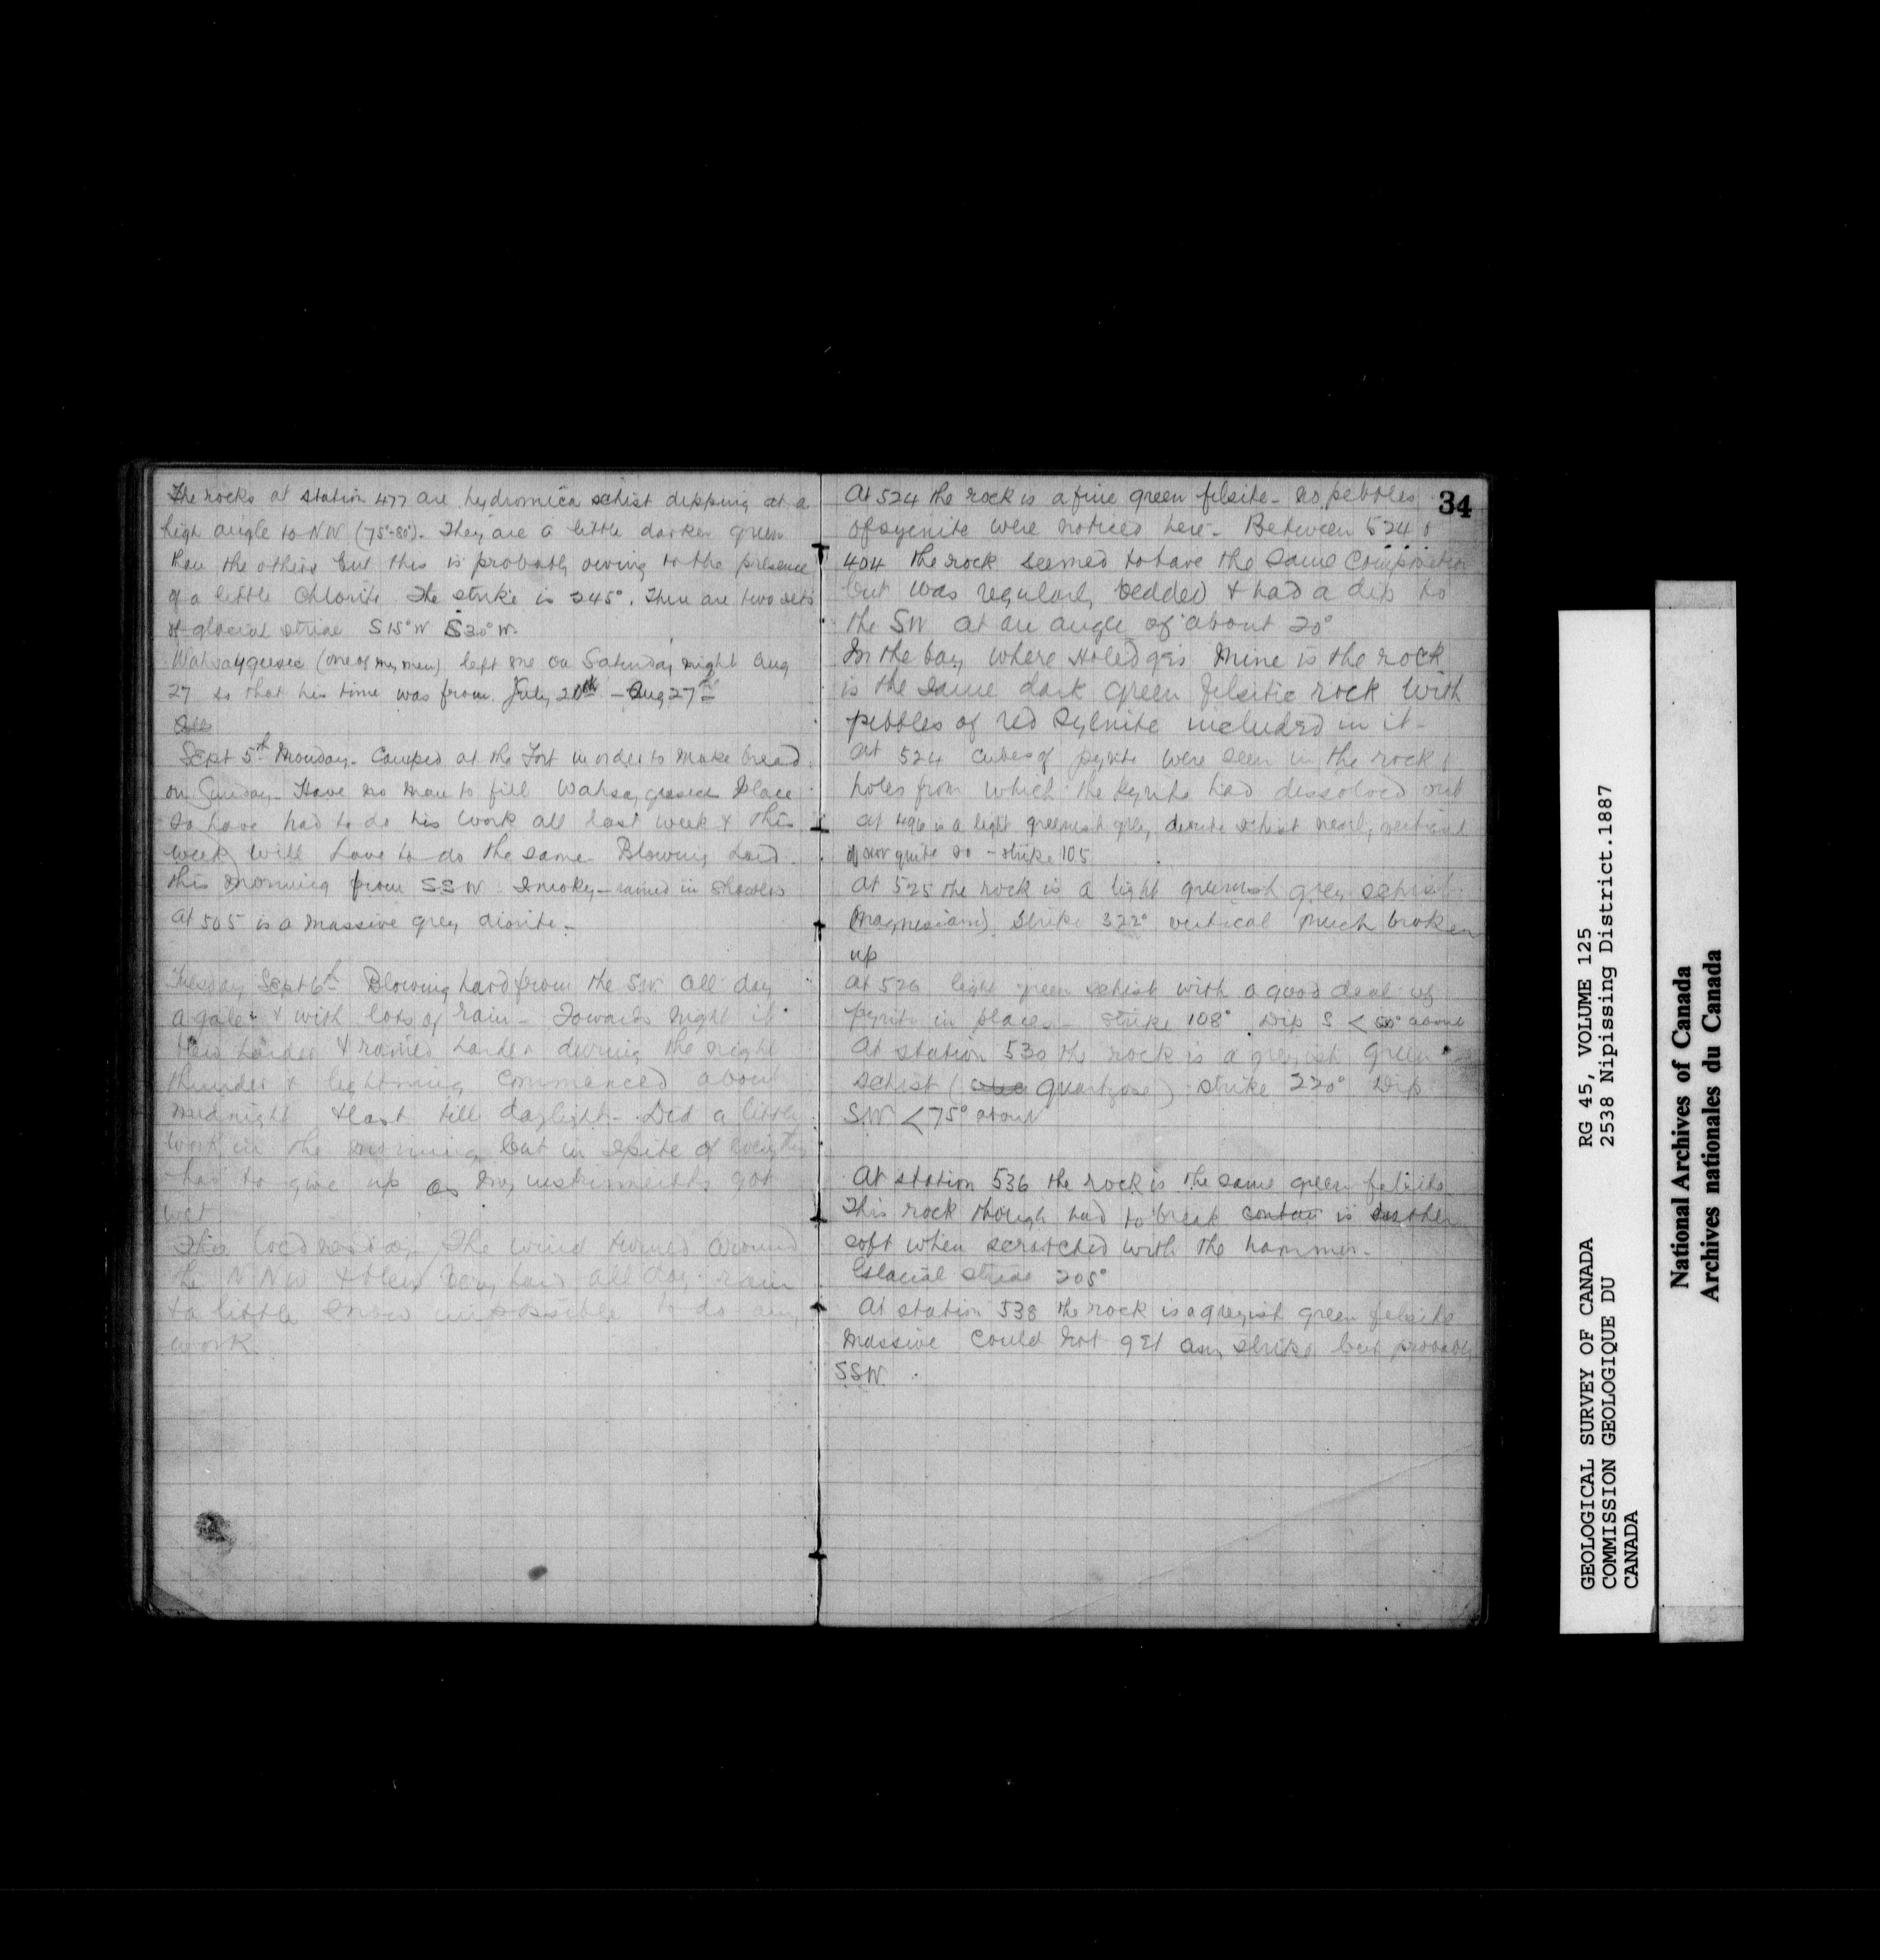 The rocks at station 477 are hydromica schist dipping at a
high angle to NW (75°-80°). They are a little darker green
than the others but this is probably owing to the presence
of a little Chlorite. The strike is 245°. There are two sets
of glacial striae S15°W S30°W.
Wahsayguesic (one of my men) left me on Saturday night Aug
27 so that his time was from July 20th - Aug 27th
Sept 5th Monday. Camped at the Fort in order to make bread
on Sunday - Have no man to fill place
so have had to do his work all last week & this
week will have to do the same - Blowing hard
this morning from SSW Smokey - rained in showers
at 505 is a massive grey diorite -
Tuesday Sept 6th Blowing hard from the SW. all day
a gale & with lots of rain - Towards night it
blew harder & rained harder during the night
thunder & lightning commenced about
midnight & last till daylight - Did a little
work in the morning but in spite of
had to give up as my instruments got
wet
The wind turned around
the NNW & blew very hard all day rain
& a little snow impossible to do any
work.
34
At 524 the rock is a fine green felsite - no pebbles
of syenite were noticed here - Between 524 &
404 the rock seemed to have the same composition
but was regularly bedded & had a dip to
the SW at an angle of about 20°
In the bay where Mine is the rock
is the same dark green felsitic rock with
pebbles of red syenite included in it -
at 524 cubes of pyrite were seen in the rock &
holes from which the pyrite had dissolved out
at 496 is a light greenish grey schist nearly vertical
if not quite so - strike 105
at 525 the rock is a light greenish grey schist
(magnesian) strike 322° vertical much broken
up
at 526 light green schist with a good deal of
pyrite in places - strike 108° Dip S < about
At station 530 the rock is a greyish green
schist ( quartzose) strike 220° Dip
SW < 75° about
At station 536 the rock is the same green felsite
This rock though hard to break contain is rather
soft when scratched with the hammer -
Glacial striae 205°
At station 538 the rock is a greyish green felsite
massive Could not get any strike but probably
SSW.
GEOLOGICAL SURVEY OF CANADA RG 45, VOLUME 125
COMMISSION GEOLOGIQUE DU 2538 Nipissing District.1887
CANADA
National Archives of Canada
Archives nationales du Canada